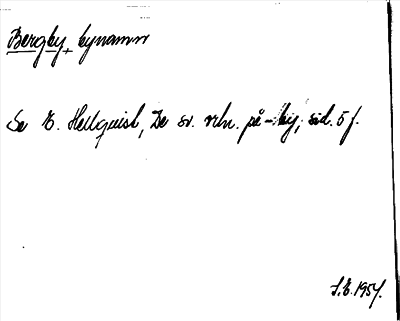 Bergby, bynamn
Se E. Hellquist, De sv. ortn. på -by, sid. 5 f.
S.E. 1954.